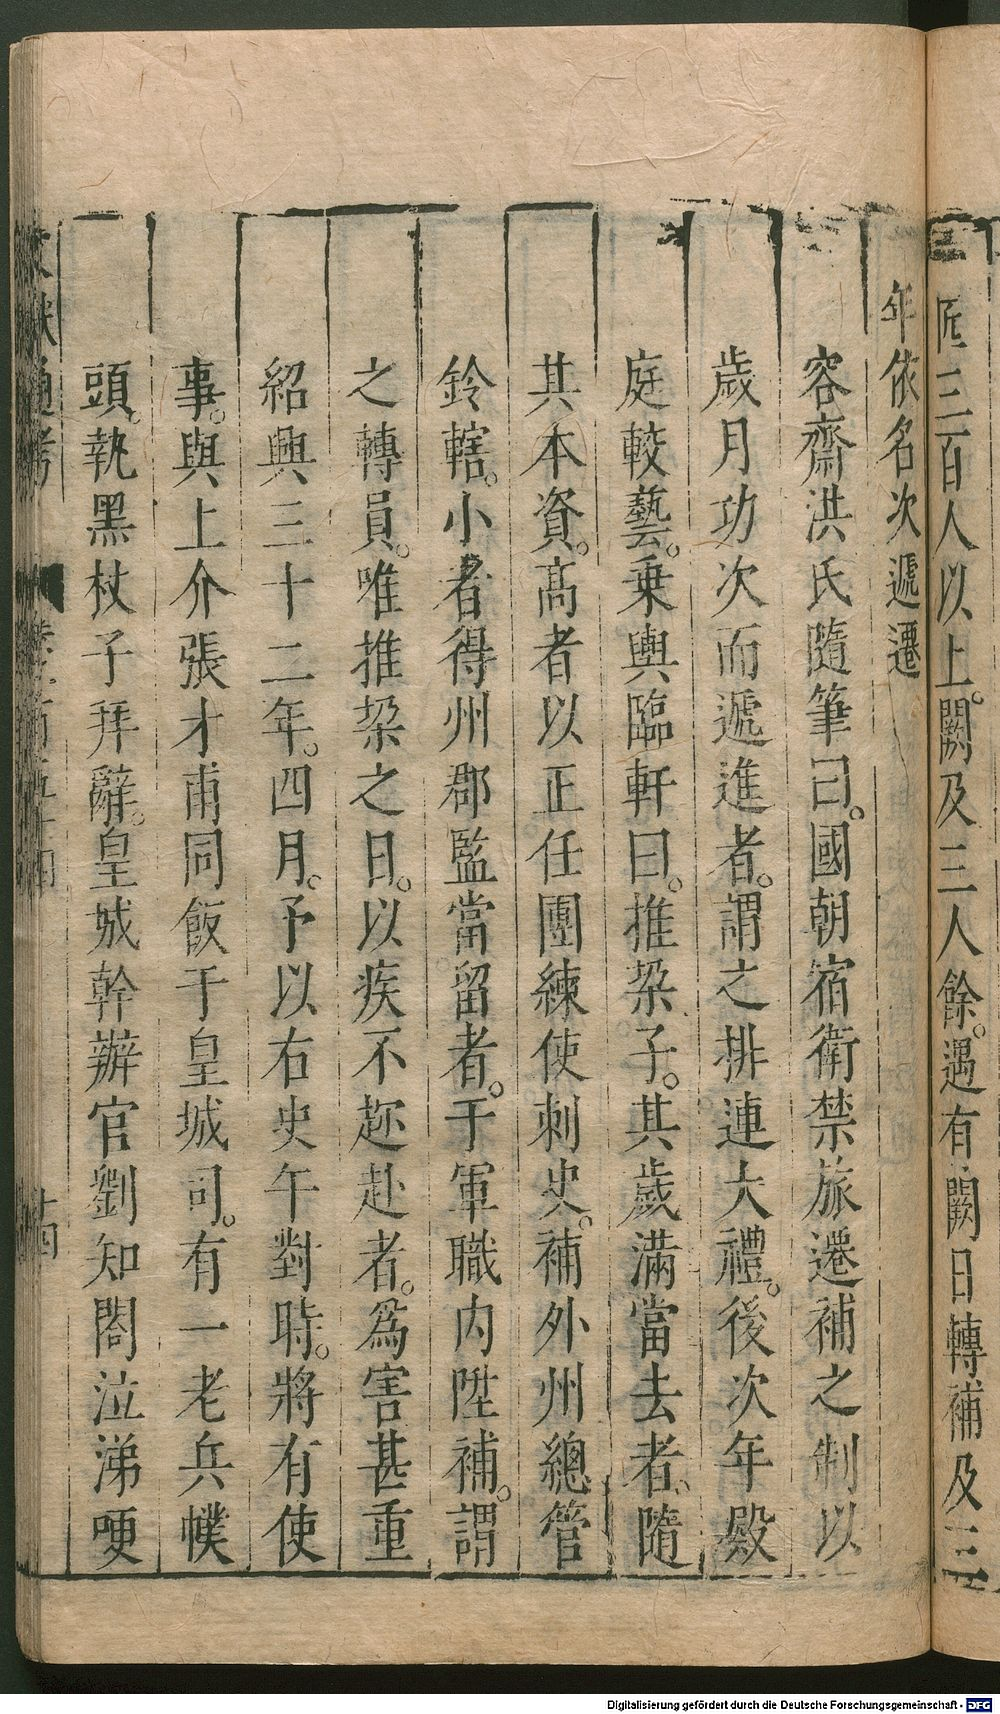 匠三百人以上。闕及三人餘。遇有闕日轉補及三
年依名次遞遷
容齋洪氏隨筆曰。國朝宿衛禁旅遷補之制以
歲月功次而遞進者。謂之排連大禮。後次年殿
庭較藝。乗輿臨軒曰。推桒子。其歲滿當去者。隨
其本資。高者以正任團練使刺史。補外州總管
鈐轄。小者得州郡監當留者。于軍職内陞補。謂
之轉員。唯推桒之日。以疾不趂赴者。爲害甚重
紹興三十二年。四月。予以右史午對時。將有使
事。與上介張才甫同飯于皇城司。有一老兵幞
頭。執黑杖子拜辭。皇城幹辦官劉知閤泣涕哽
文獻通考
十四
Digitalisierung gefördert durch die Deutsche Forschungsgemeinschaft - DFG